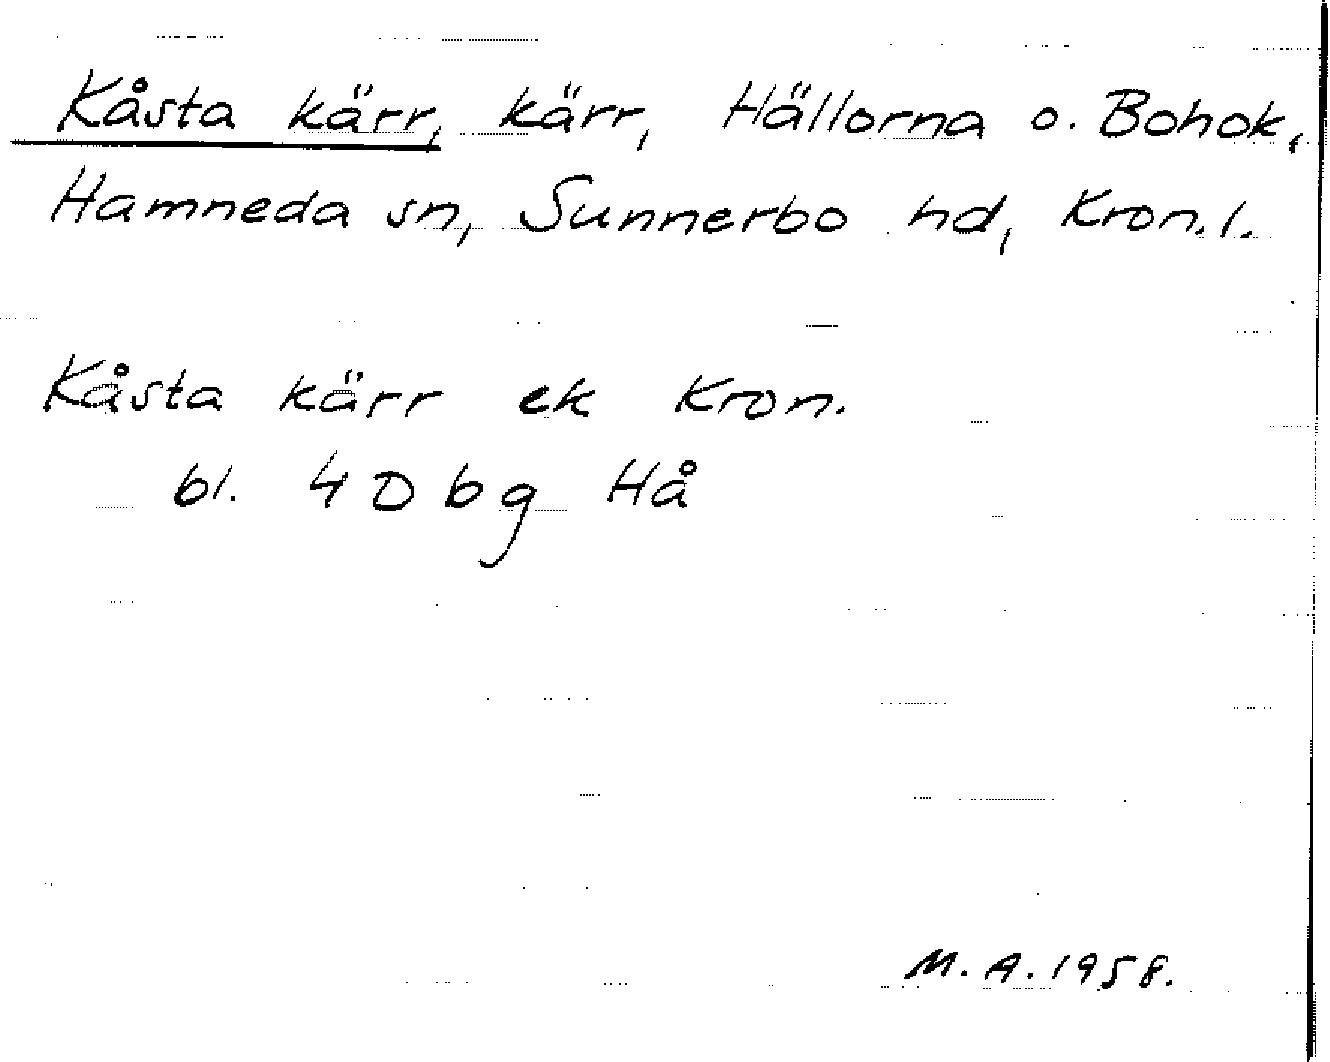 Kåsta kärr, kärr, Hällorna o. Bohok,
Hamneda sn, Sunnerbo hd, Kron. l.
Kåsta kärr ek Kron.
bl. 4 D b g Hå
M. A. 1958.